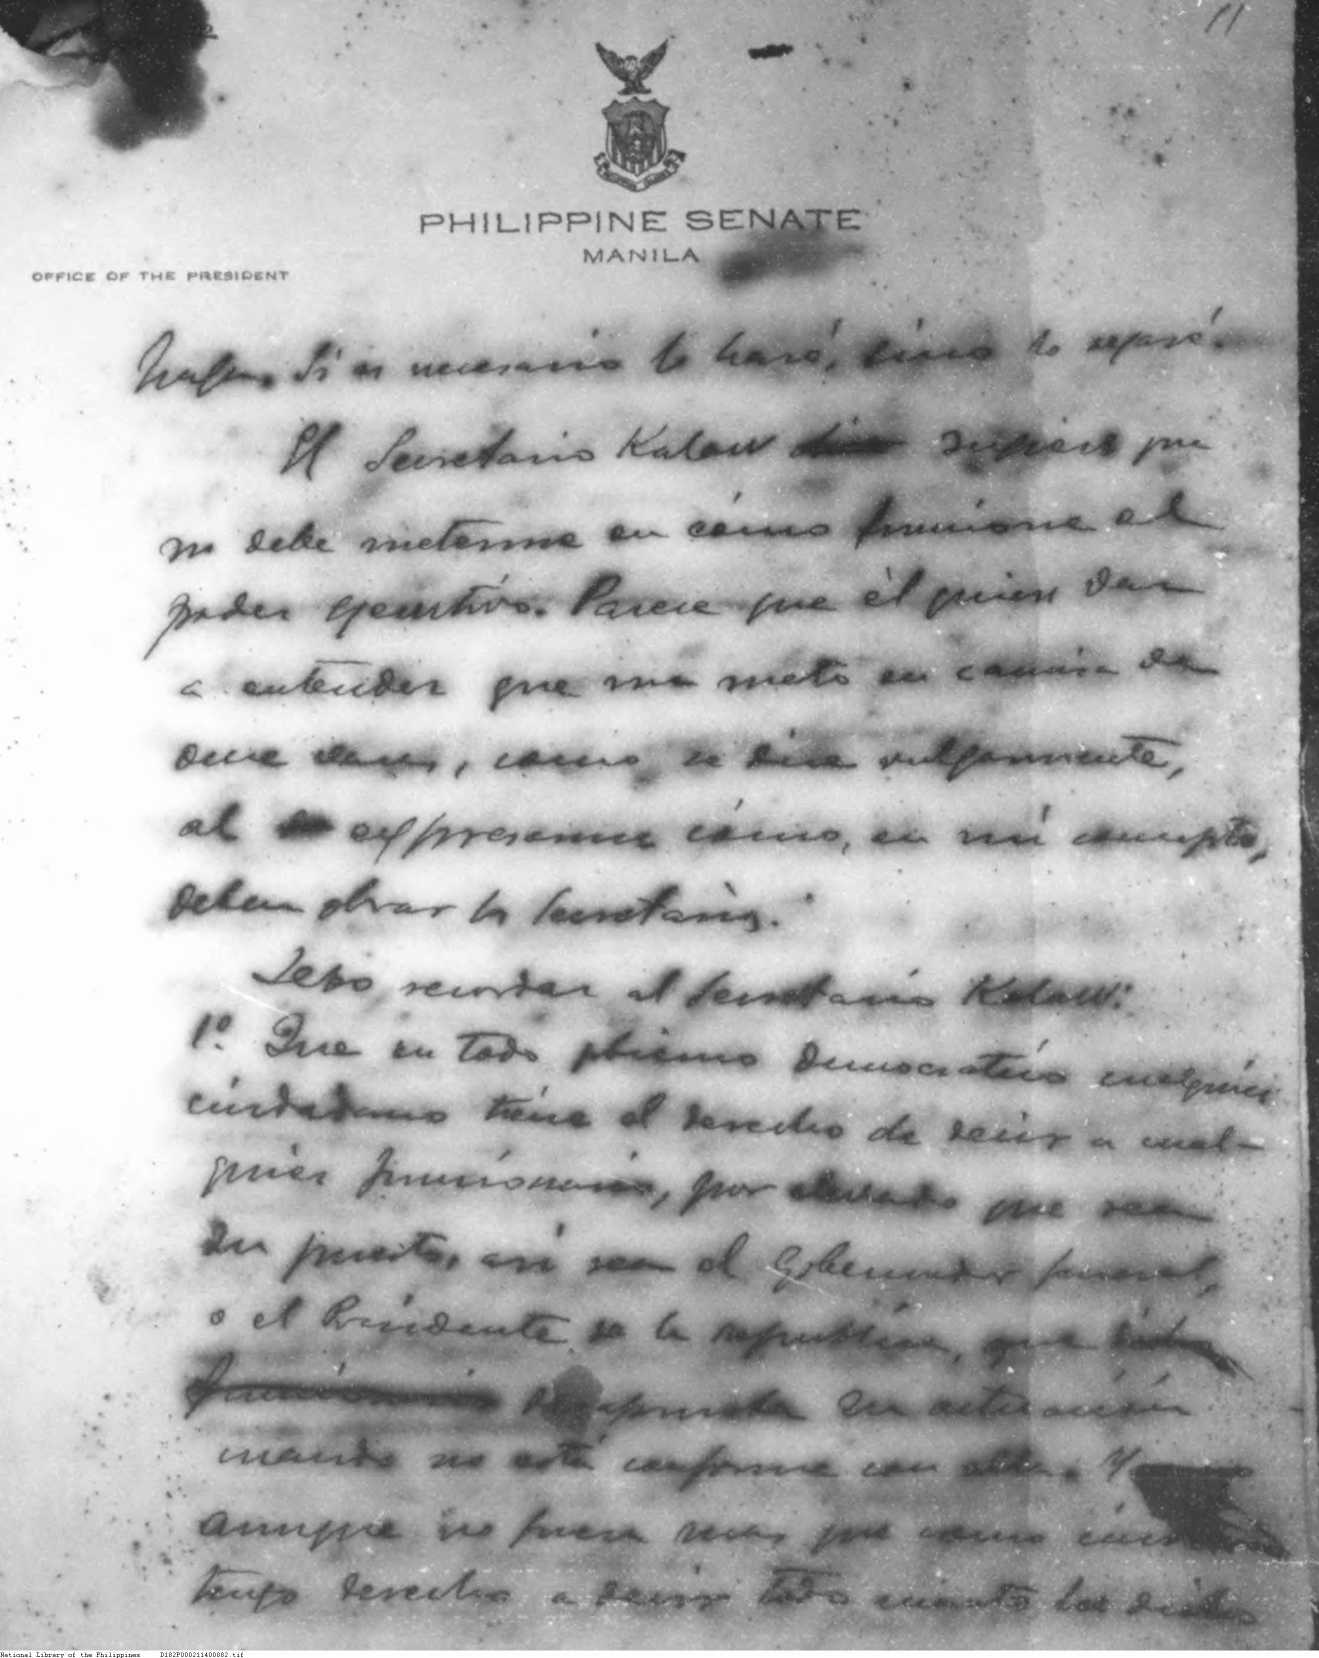 11
PHILIPPINE SENATE
MANILA
OFFICE OF THE PRESIDENT
haga. Si es necesario lo haré, sino lo
El Secretario Kalaw sugiere que
no debe meterme en cómo funcione el
poder ejecutivo. Parece que él quiere dar
a entender que me meto en camisa de
once varas, como se dice vulgarmente,
al expresarme cómo, en mi concepto,
deben obrar los Secretarios.
Debo recordar al Secretario Kalaw:
1º. Que en todo gobierno democratico cualquier
ciudadano tiene el derecho de decir a cual-
quier funcionario, por elevado que sea
su puesto, así sea el Gobernador General,
o el Presidente de la republica, que
desaprueba su actuación
cuando no está conforme con ella. Y
aunque no fuera mas que como
tengo derecho a decir todo cuanto he dicho
National Library of the Philippines D182P000211400082.tif